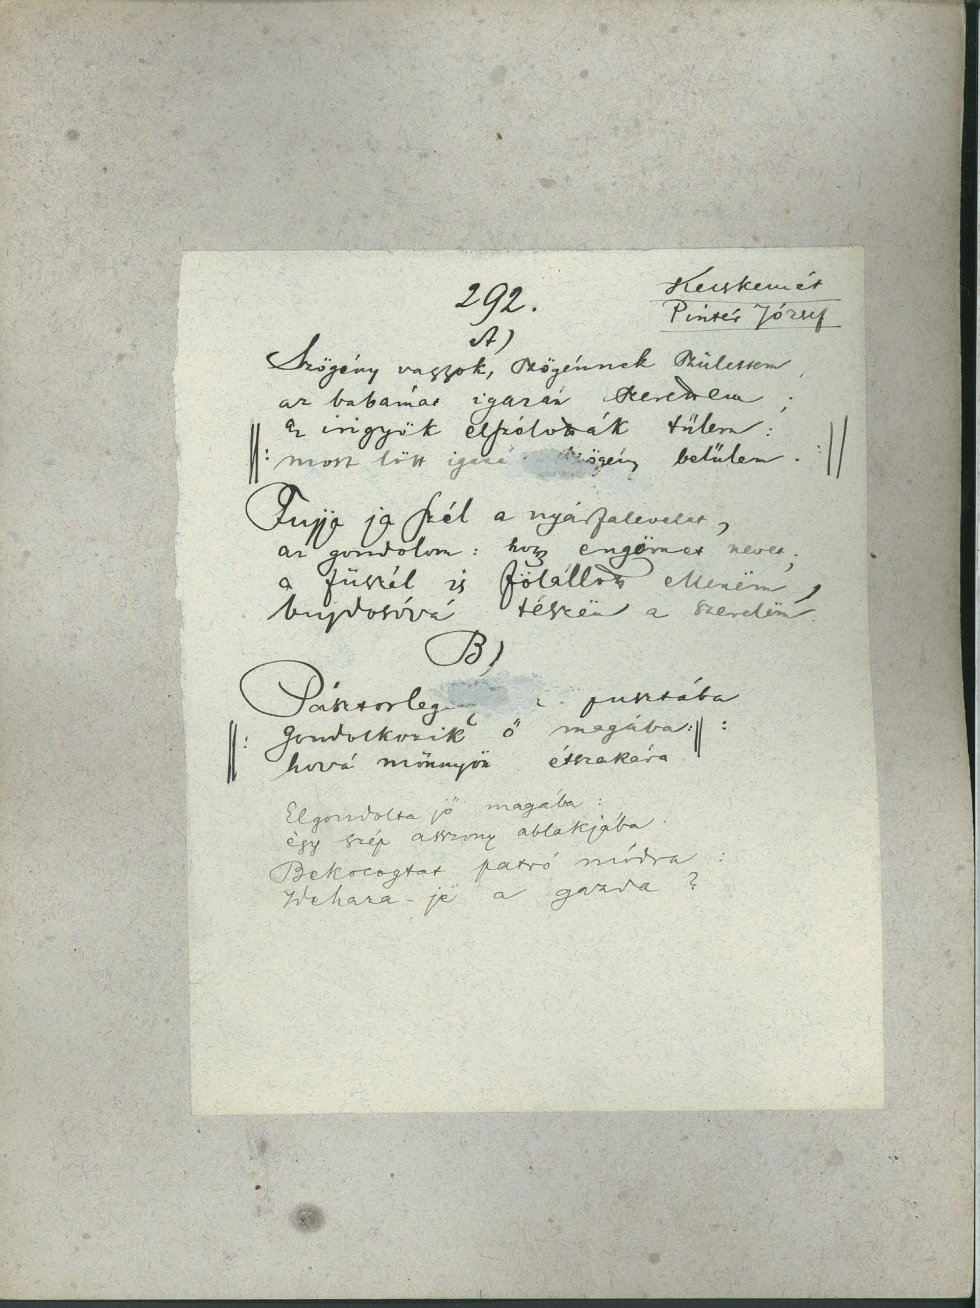 292.
Kecskemét
Pintér József
A)
Szögény vagyok, szögénnek születtem,
az babámat igazán szerettem;
az irigyök elszólották tűlem:
||: most lött igazá szögény belűlem. :||
Fujja ja szél a nyárfalevelet,
azt gondolom: hogy engömet nevet;
a fűszál is fölállott elleněm,
bujdosóvá tészën a szerelëm.
B)
Pásztorleg pusztába
||: gondolkozik ő magába :||:
hová mönnyön étszakára
Elgondolta jő magába:
ëgy szép asszony ablakjába.
Bekocogtat patró módra:
Idehaza-jë a gazda?